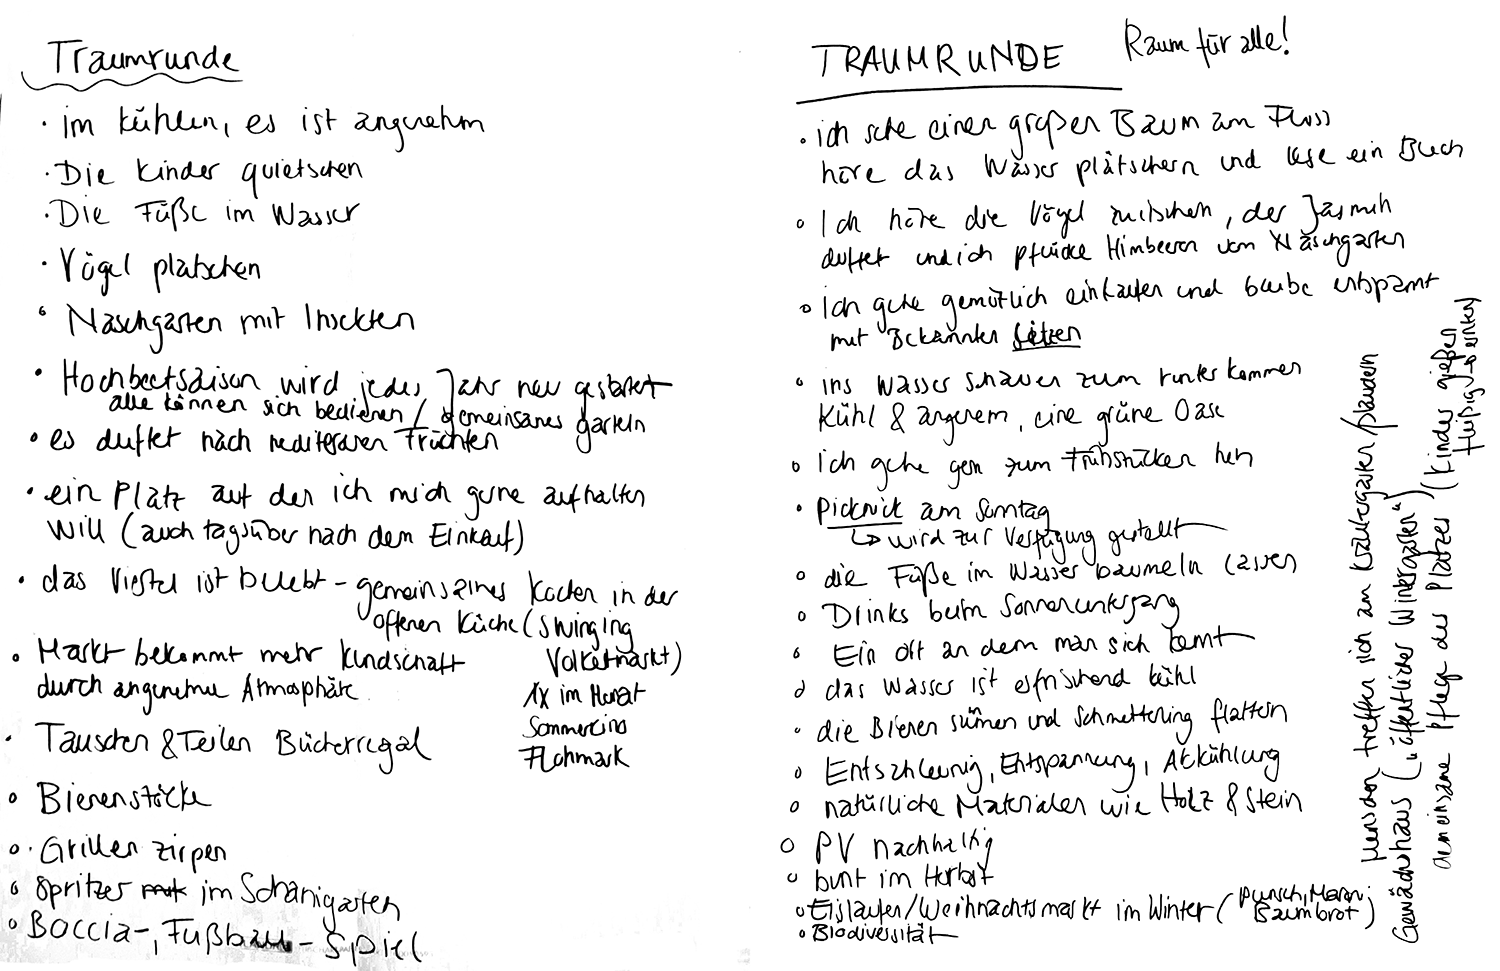 Traumrunde
• im kühlen, es ist angenehm
• Die Kinder quietschen
• Die Füße im Wasser
• Vögel platschen
• Naschgarten mit Insekten
• Hochbeetsaison wird jedes Jahr neu gestartet
alle können sich bedienen / gemeinsames garteln
• es duftet nach mediteranen Früchten
• ein Platz auf den ich mich gerne aufhalten
will (auch tagsüber nach dem Einkauf)
• das Viertel ist belebt - gemeinsames Kochen in der
offenen Küche (Swinging
Volkertmarkt)
• Markt bekommt mehr Kundschaft
durch angenehme Atmosphäre
1x im Monat
Sommerkino
Flohmark
• Tauschen & Teilen Bücherregal
• Bienenstöcke
• Grillen zirpen
• Spritzer im Schanigarten
• Boccia-, Fußball-Spiel
TRAUMRUNDE Raum für alle!
• ich sehe einen großen Baum am Fluss
höre das Wasser plätschern und lese ein Buch
• Ich höre die Vögel zwitschern, der Jasmin
duftet und ich pflücke Himbeeren vom Naschgarten
• Ich gehe gemütlich einkaufen und bleibe entspannt
mit Bekannten sitzen
• ins Wasser schauen zum runter kommen
Kühl & angenem, eine grüne Oase
• Ich gehe gern zum Frühstücken hin
• Picknick am Sonntag
↳ wird zur Verfügung gestellt
• die Füße im Wasser baumeln lassen
• Drinks beim Sonnenuntergang
• Ein Ort an dem man sich kennt
• das Wasser ist erfrischend kühl
• die Bienen summen und Schmetterling flattern
• Entschleunig, Entspannung, Abkühlung
• natürliche Materialen wie Holz & Stein
• PV nachhaltig
• bunt im Herbst
• Eislaufen/Weihnachtsmarkt im Winter (Punsch, Maroni
Baumbrot)
• Biodiversität
Menschen treffen sich am Kräutergarten/plaudern
Gewächshaus („öffentlicher Wintergarten“)
Gemeinsame Pflege des Platzes (Kinder gießen
fleißig